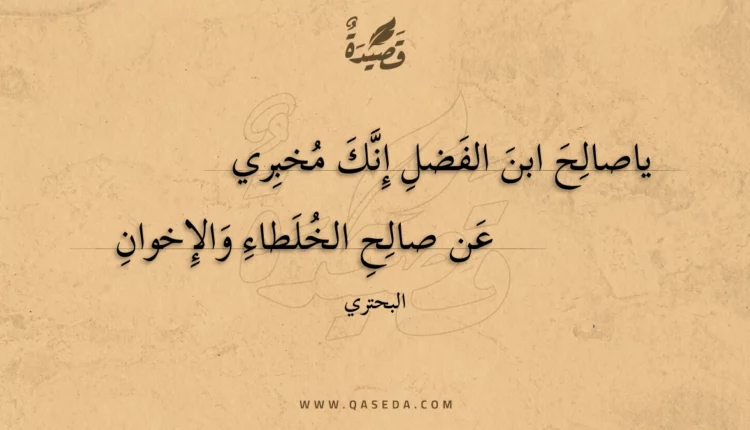 قَصِيْدَةٌ
ياصالِحَ ابنَ الفَضلِ إِنَّكَ مُخبِري
عَن صالِحِ الخُلَطاءِ وَالإِخوانِ
البحتري
WWW.QASEDA.COM